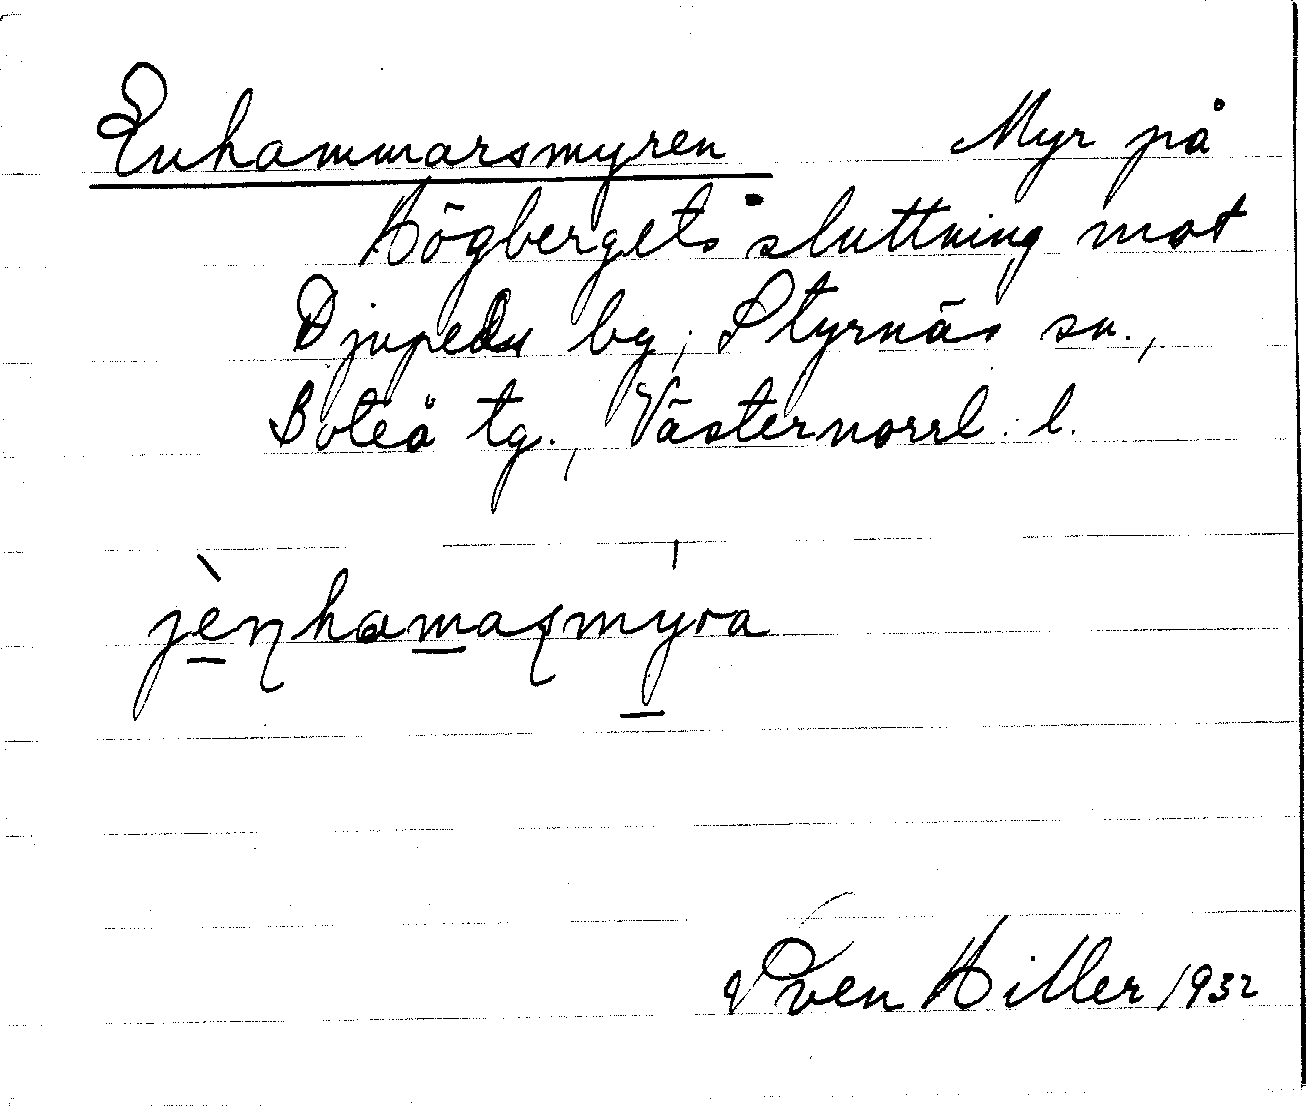 Enhammarsmyren Myr på
Högbergets sluttning mot
Djupedu by, Styrnäs sn.,
Boteå tg., Västernorrl. l.
jèn̡hamaʂmýra
Sven Hiller 1932